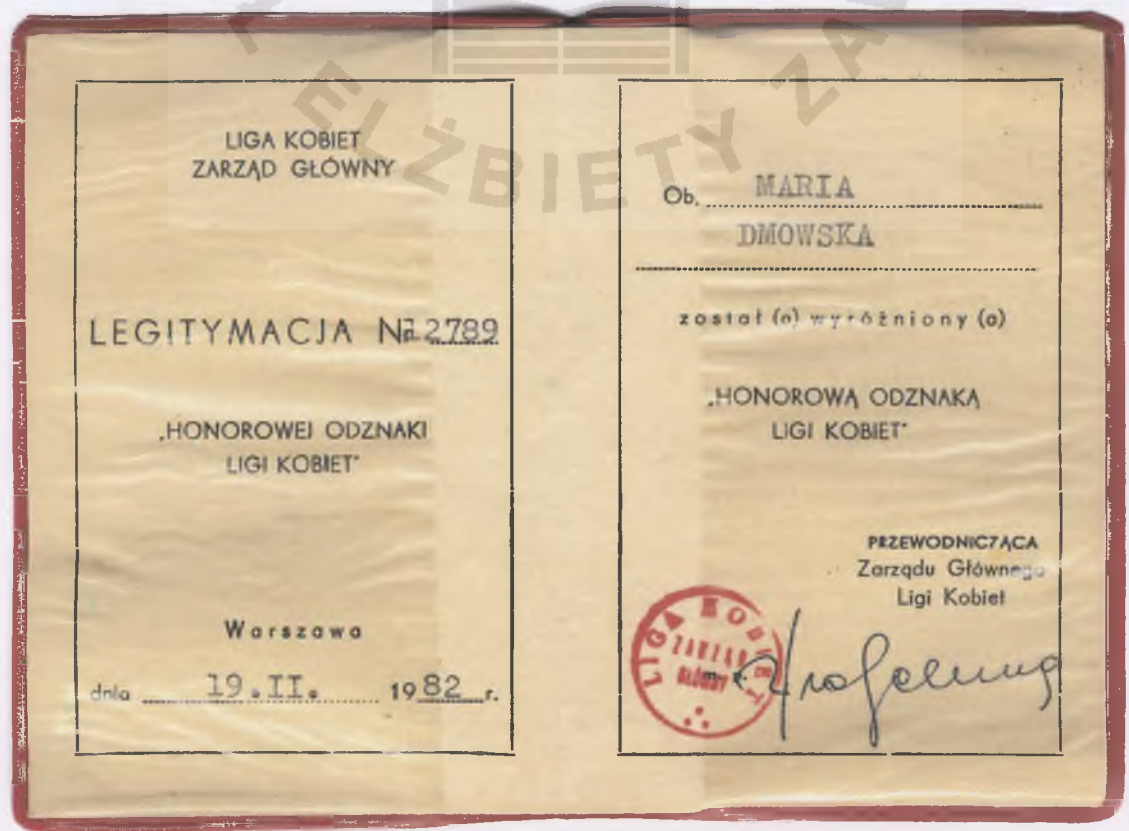 ELŻBIETY ZA
LIGA KOBIET
ZARZĄD GŁÓWNY
LEGITYMACJA Nr 12789
„HONOROWEJ ODZNAKI
LIGI KOBIET"
Warszawa
dnia 19.II. 1982 r.
Ob. MARIA
DMOWSKA
został (a) wyróżniony (a)
„HONOROWĄ ODZNAKĄ
LIGI KOBIET"
PRZEWODNICZĄCA
Zarządu Głównego
Ligi Kobiet
LIGA KOBIET
ZARZĄD
GŁÓWNY